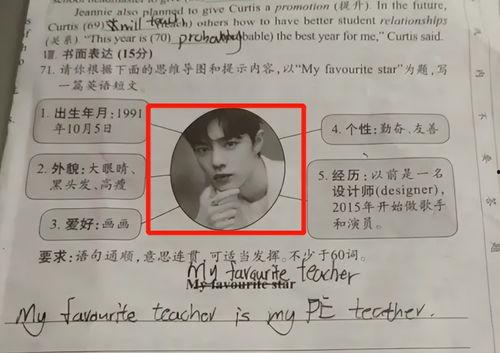 school headmaster to give Curtis a promotion (提升). In the future,
Jeannie also planned to
Curtis (69) will teach others how to have better student relationships
(关系) "This year is (70) probably bable) the best year for me," Curtis said.
Ⅷ. 书面表达 (15分)
71. 请你根据下面的思维导图和提示内容,以"My favourite star"为题,写
一篇英语短文。
1. 出生年月:1991
年10月5日
2. 外貌:大眼睛、
黑头发、高瘦
3. 爱好:画画
4. 个性:勤奋、友善
5. 经历:以前是一名
设计师(designer),
2015年开始做歌手
和演员。
要求:语句通顺,意思连贯,可适当发挥。不少于60词。
My favourite teacher
My favourite star
My favourite teacher is my PE teacher.